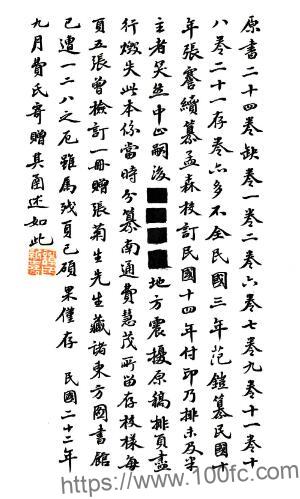 原書二十四卷缺卷一卷二卷六卷七卷九卷十一卷十
八卷二十一存卷六多不全民國三年范鎧纂民國十
年張謇續纂孟森校訂民國十四年付印乃排未及半
主者突然中止嗣後地方震擾原稿排頁盡
行燬失此本係當時分纂南通費慧茂所留存校樣每
頁五張曾檢訂一冊贈張菊生先生藏諸東方圖書館
已遭一二八之厄雖屬殘頁已碩果僅存 民國二十二年
九月費氏寄贈其函述如此
https://www.100fc.com